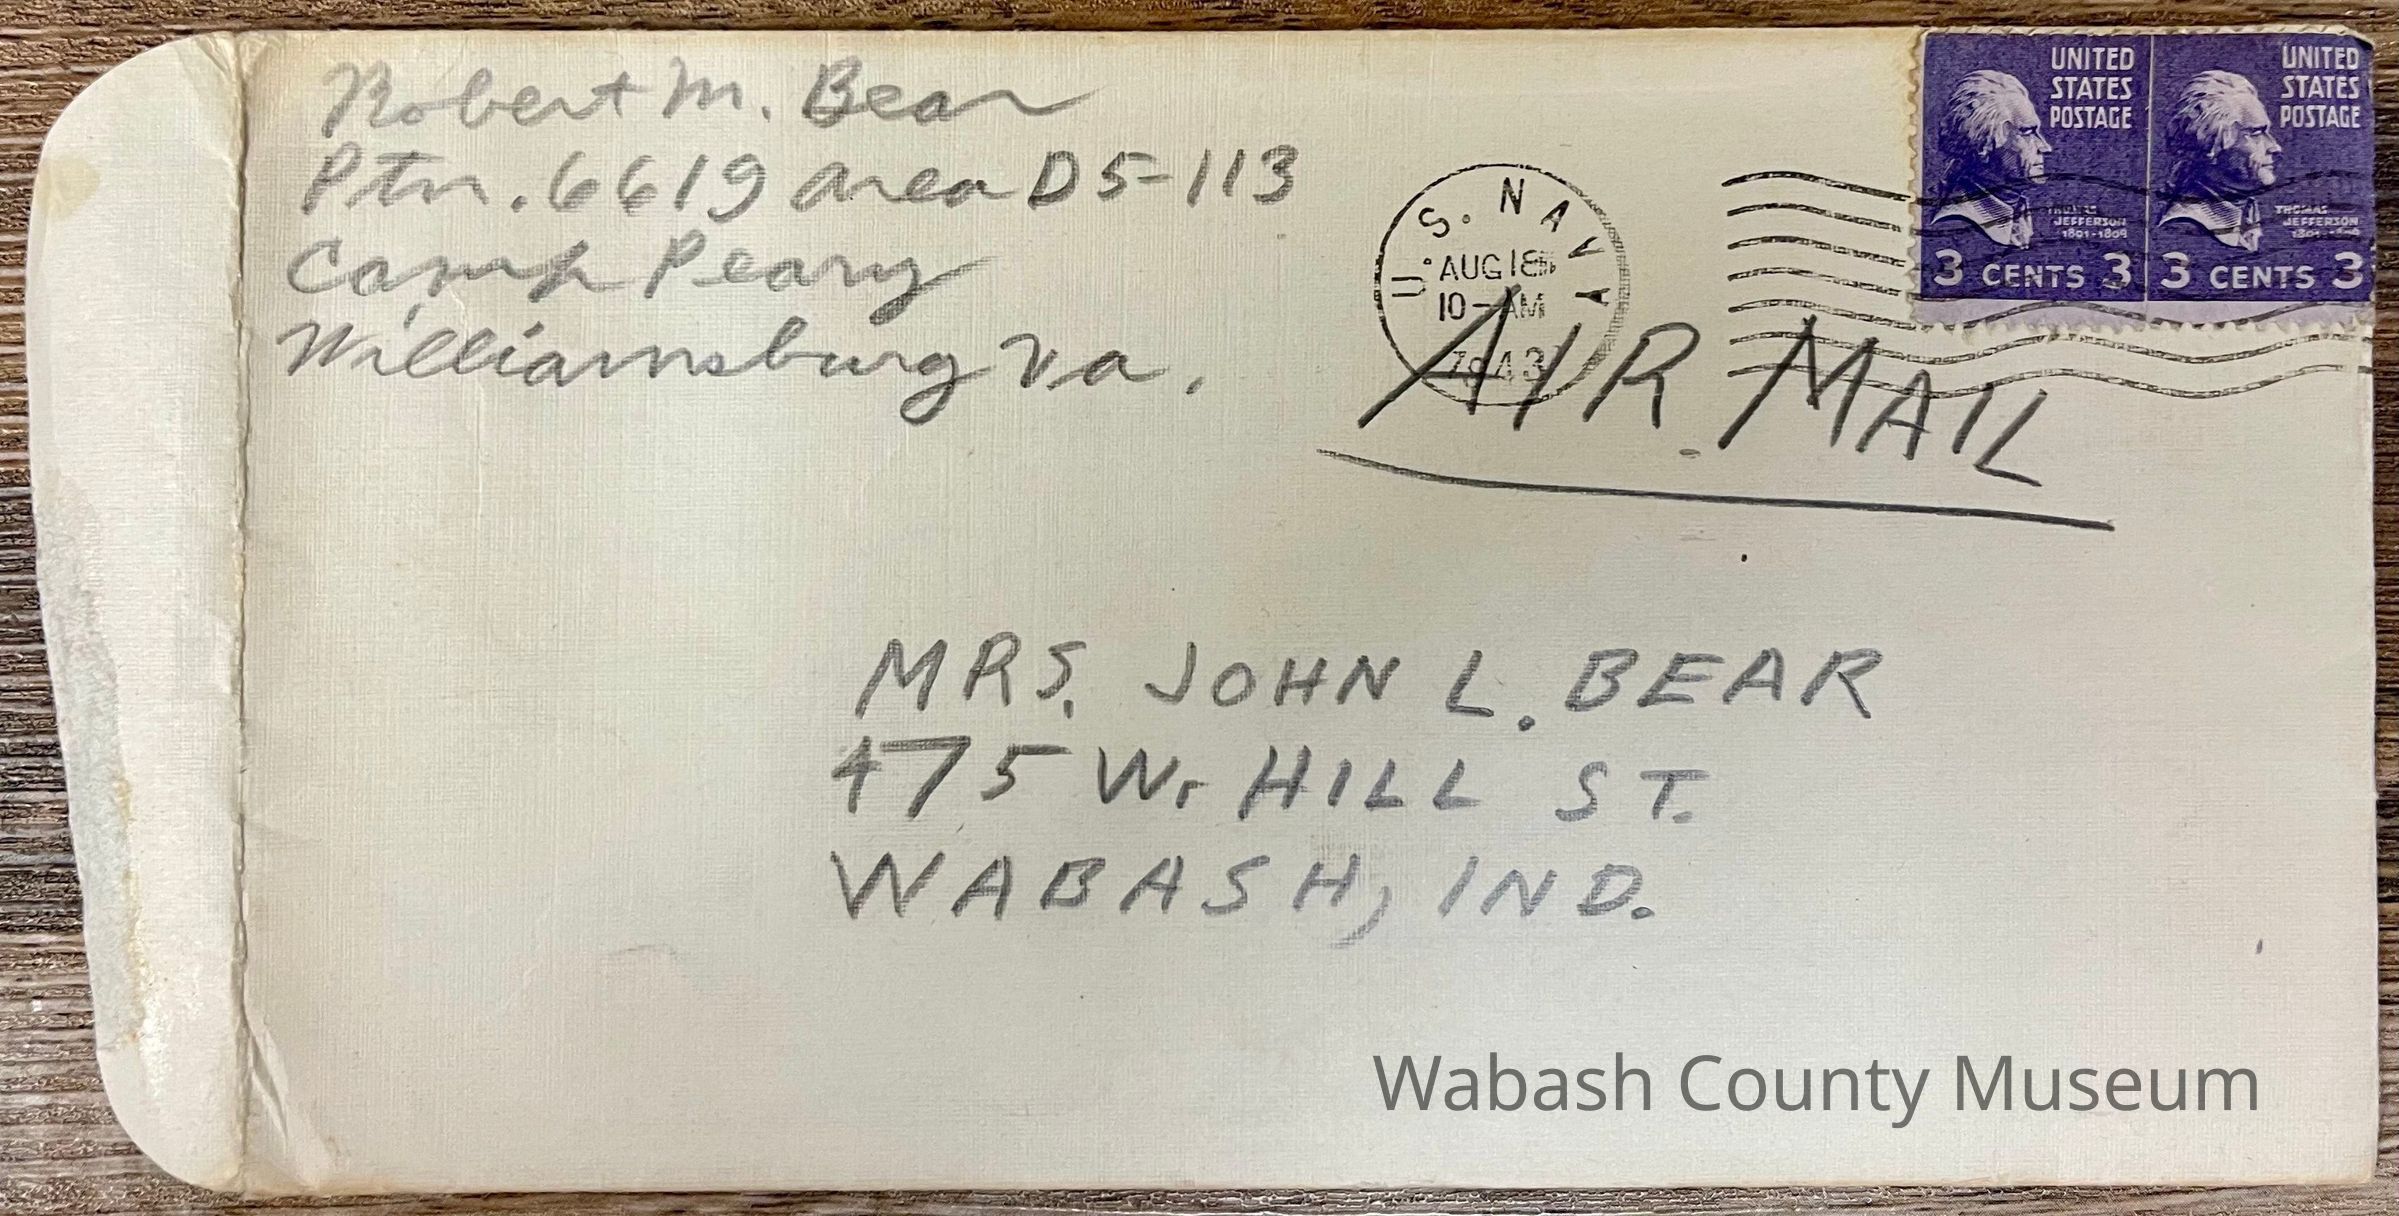 Robert M. Bear
Ptn. 6619 Area D5-113
Camp Peary
Williamsburg Va.
U.S. NAVY
AUG 18
10-AM
1943
UNITED
STATES
POSTAGE
THOMAS
JEFFERSON
1801-1809
3 CENTS 3
UNITED
STATES
POSTAGE
THOMAS
JEFFERSON
1801-1809
3 CENTS 3
AIR MAIL
MRS. JOHN L. BEAR
475 W. HILL ST.
WABASH, IND.
Wabash County Museum